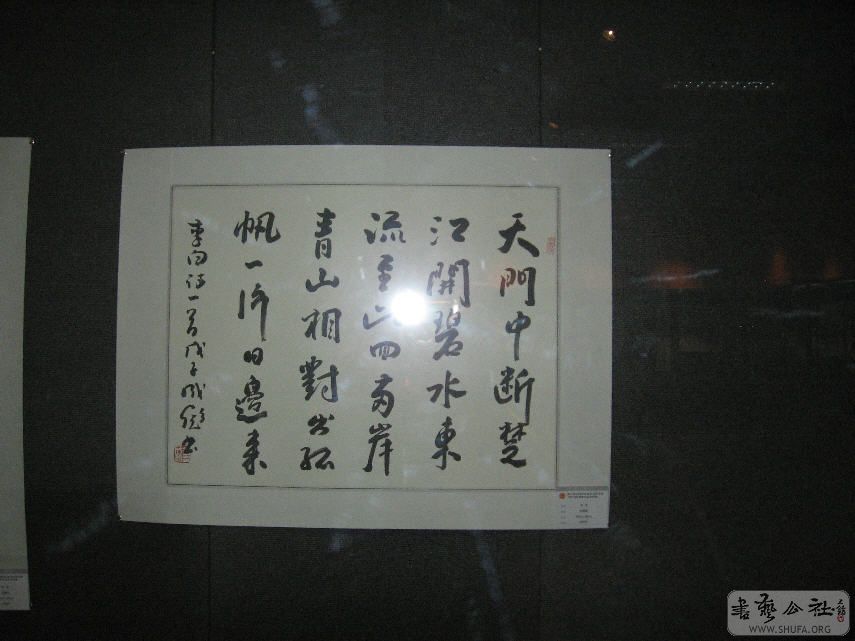 天門中断楚
江開碧水東
流至此回兩岸
青山相對出孤
帆一片日邊来
李白诗一首戊子
書
書藝公社
WWW.SHUFA.ORG